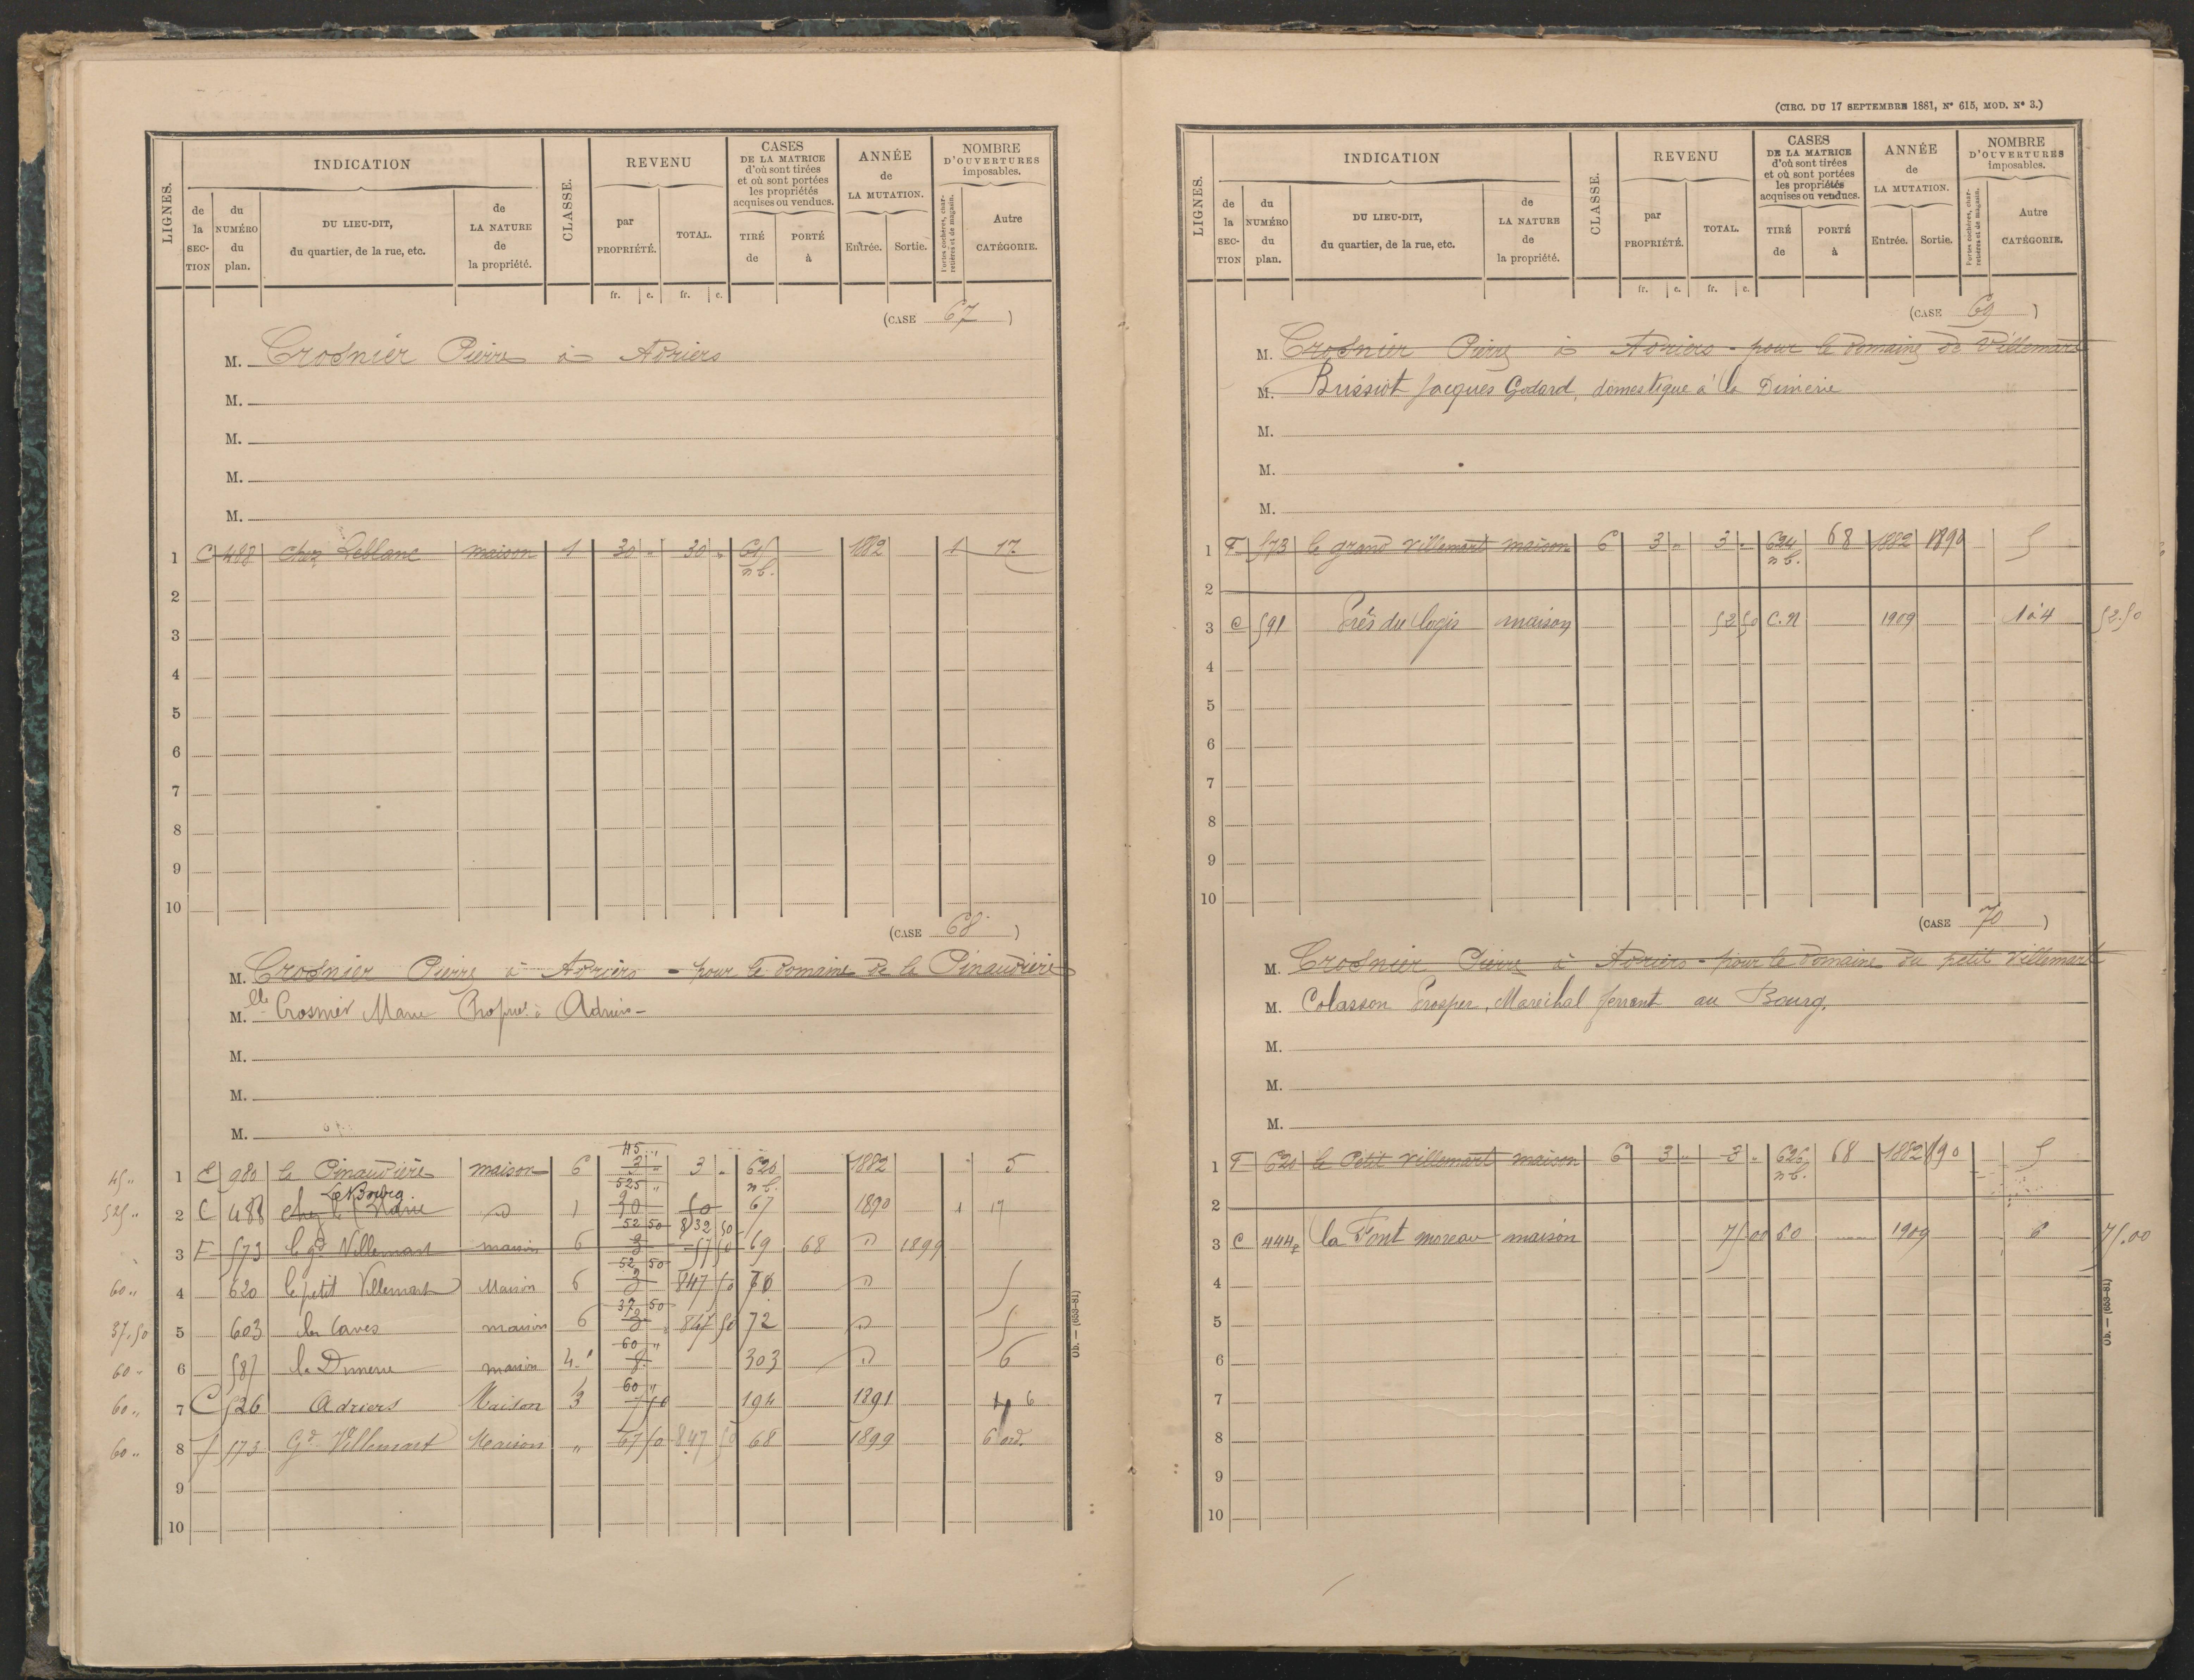 LIGNES.
INDICATION
de la SECTION
du NUMÉRO du plan.
DU LIEU-DIT, du quartier, de la rue, etc.
de LA NATURE de la propriété.
CLASSE.
REVENU
par PROPRIÉTÉ.
TOTAL.
fr. c. fr. c.
CASES DE LA MATRICE d'où sont tirées et où sont portées les propriétés acquises ou vendues.
TIRÉ de
PORTÉ à
ANNÉE de LA MUTATION.
Entrée. Sortie.
NOMBRE D'OUVERTURES imposables.
Portes cochères, charretières et de magasin.
Autre CATÉGORIE.
(CASE 67)
M. Crosnier Pierre à Adriers
M.
M.
M.
M.
1 C 488 chez Leblanc maison 1 30 " 30 " 61 n b. 1882 1 17
2
3
4
5
6
7
8
9
10
(CASE 68)
M. Crosnier Pierre à Adriers - pour le domaine de la Pinaudière
M. elle Crosnier Marie Propre à Adriers
M.
M.
M.
45 "
45 " 1 E 980 la Pinaudière maison 6 3 " 3 " 620 n b. 1882 5
Le Bourg 525 "
525 " 2 C 488 chez le maire d 1 30 67 1890 1 17
52 50 832 50
3 F 573 le gd Villemart maison 6 3 57 50 69 68 d 1899
52 50
60 " 4 620 le petit Villemart Maison 6 3 847 50 70 d 5
37 50
37.50 5 603 les Caves maison 6 3 847 50 72 d 5
60 "
60 - 6 587 la Dimerie maison 4 8 303 d 6
60 "
60 " 7 C 526 Adriers Maison 3 7 50 194 1891 4 6
60 " 8 f 573 Gd Villemart Maison " 67 50 847 50 68 1899 6 ord.
9
10
Ub. — (653-81)
(CIRC. DU 17 SEPTEMBRE 1881, N° 615, MOD. N° 3.)
LIGNES.
INDICATION
de la SECTION
du NUMÉRO du plan.
DU LIEU-DIT, du quartier, de la rue, etc.
de LA NATURE de la propriété.
CLASSE.
REVENU
par PROPRIÉTÉ.
TOTAL.
fr. c. fr. c.
CASES DE LA MATRICE d'où sont tirées et où sont portées les propriétés acquises ou vendues.
TIRÉ de
PORTÉ à
ANNÉE de LA MUTATION.
Entrée. Sortie.
NOMBRE D'OUVERTURES imposables.
Portes cochères, charretières et de magasin.
Autre CATÉGORIE.
(CASE 69)
M. Crosnier Pierre à Adriers - pour le domaine de Villemart
M. Bussiot Jacques Godard, domestique à la Dimerie
M.
M.
M.
1 F 573 le grand Villemart maison 6 3 " 3 " 624 n b. 68 1882 1890 5
2
3 C 591 Près du Logis maison 52 50 C.N 1909 1 à 4 52.50
4
5
6
7
8
9
10
(CASE 70)
M. Crosnier Pierre à Adriers - pour le domaine du petit Villemart
M. Colasson Prosper, Maréchal ferrant au Bourg.
M.
M.
M.
1 F 620 le Petit Villemart maison 6 3 " 3 " 626 n b. 68 1882 1890 5
2
3 C 444p la Font moreau maison 75 00 60 1909 6 75.00
4
5
6
7
8
9
10
Ub. — (653-81)